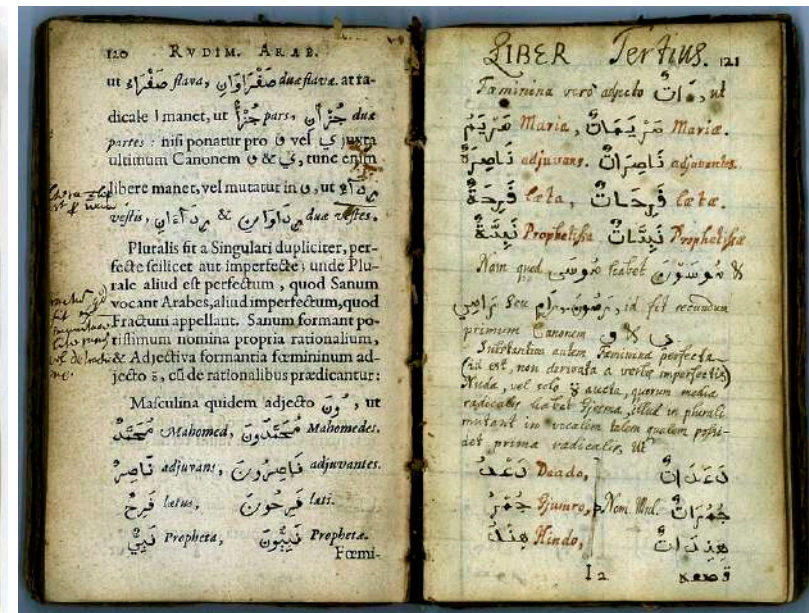 120 RVDIM. ARAB.
ut صَفْرَاء flava, صَفْرَاوَانِ duæ flavæ. at ra-
dicale ا manet, ut جُزْأ pars, جُزْأَانِ duæ
partes: nisi ponatur pro و vel ي juxta
ultimum Canonem و & ي, tunc enim
libere manet, vel mutatur in و, ut رِدَآء
vestis, رِدَآءَانِ & رِدَاوَانِ duæ vestes.
Pluralis fit a Singulari dupliciter, per-
fecte scilicet aut imperfecte; unde Plu-
rale aliud est perfectum, quod Sanum
vocant Arabes, aliud imperfectum, quod
Fractum appellant. Sanum formant po-
tissimum nomina propria rationalium,
& Adjectiva formantia fœmininum ad-
jecto ة, cū de rationalibus prædicantur:
Masculina quidem adjecto ُونَ, ut
مُحَمَّدٌ Mahomed, مُحَمَّدُونَ Mahomedes.
نَاصِرٌ adjuvans, نَاصِرُونَ adjuvantes.
فَرِحٌ lætus, فَرِحُونَ læti.
نَبِيٌّ Propheta, نَبِيُّونَ Prophetæ.
Fœmi-
LIBER Tertius. 121
Fæminina vero adjecto َاتٌ, ut
مَرْيَمُ Maria, مَرْيَمَاتٌ Mariæ.
نَاصِرَةٌ adjuvans. نَاصِرَاتٌ adjuvantes.
فَرِحَةٌ læta, فَرِحَاتٌ lætæ.
نَبِيَّةٌ Prophetissa نَبِيَّاتٌ Prophetissæ
Nom quod مُوسَى habet مُوسَوْنَ &
رَامٍ seu رَامُونَ, id fit secundum
primum Canonem و & ي
Substantiva autem Fæminina perfecta
(id est, non derivata a verbis imperfectis)
Nuda, vel solo ة aucta, quorum media
radicalis habet Gjesma, illud in plurali
mutant in vocalem talem qualem possi-
det prima radicalis, Ut
دَعْدُ Daado, دَعَدَاتٌ
جُمْرُ Gjumro, Nom. جُمُرَاتٌ
هِنْدُ Hindo, هِنِدَاتٌ
I 2 قصعة